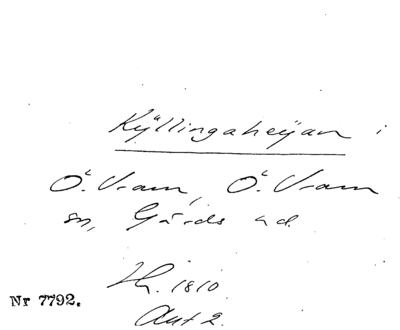 Kÿllingaheÿan i
Ö. Vram, Ö. Vram
sn, Gärds hd.
Hr. 1810.
Akt 2.
Nr 7792.